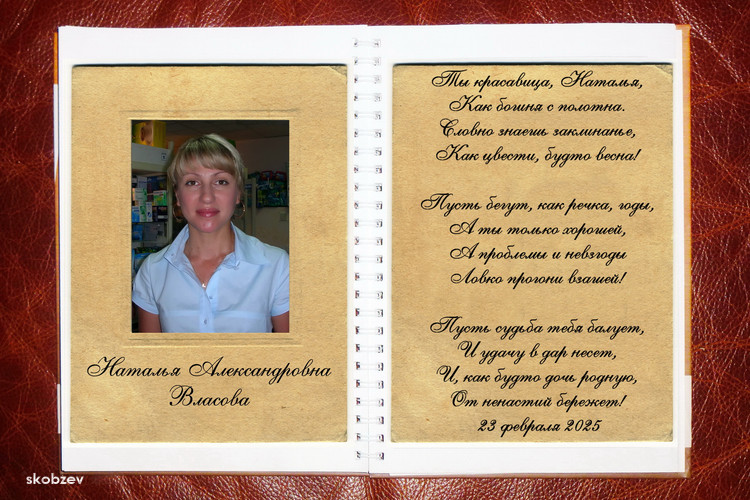 Наталья Александровна
Власова
Ты красавица, Наталья,
Как богиня с полотна.
Словно знаешь заклинанье,
Как цвести, будто весна!
Пусть бегут, как речка, годы,
А ты только хорошей,
А проблемы и невзгоды
Ловко прогони взашей!
Пусть судьба тебя балует,
И удачу в дар несет,
И, как будто дочь родную,
От ненастий бережет!
23 февраля 2025
skobzev